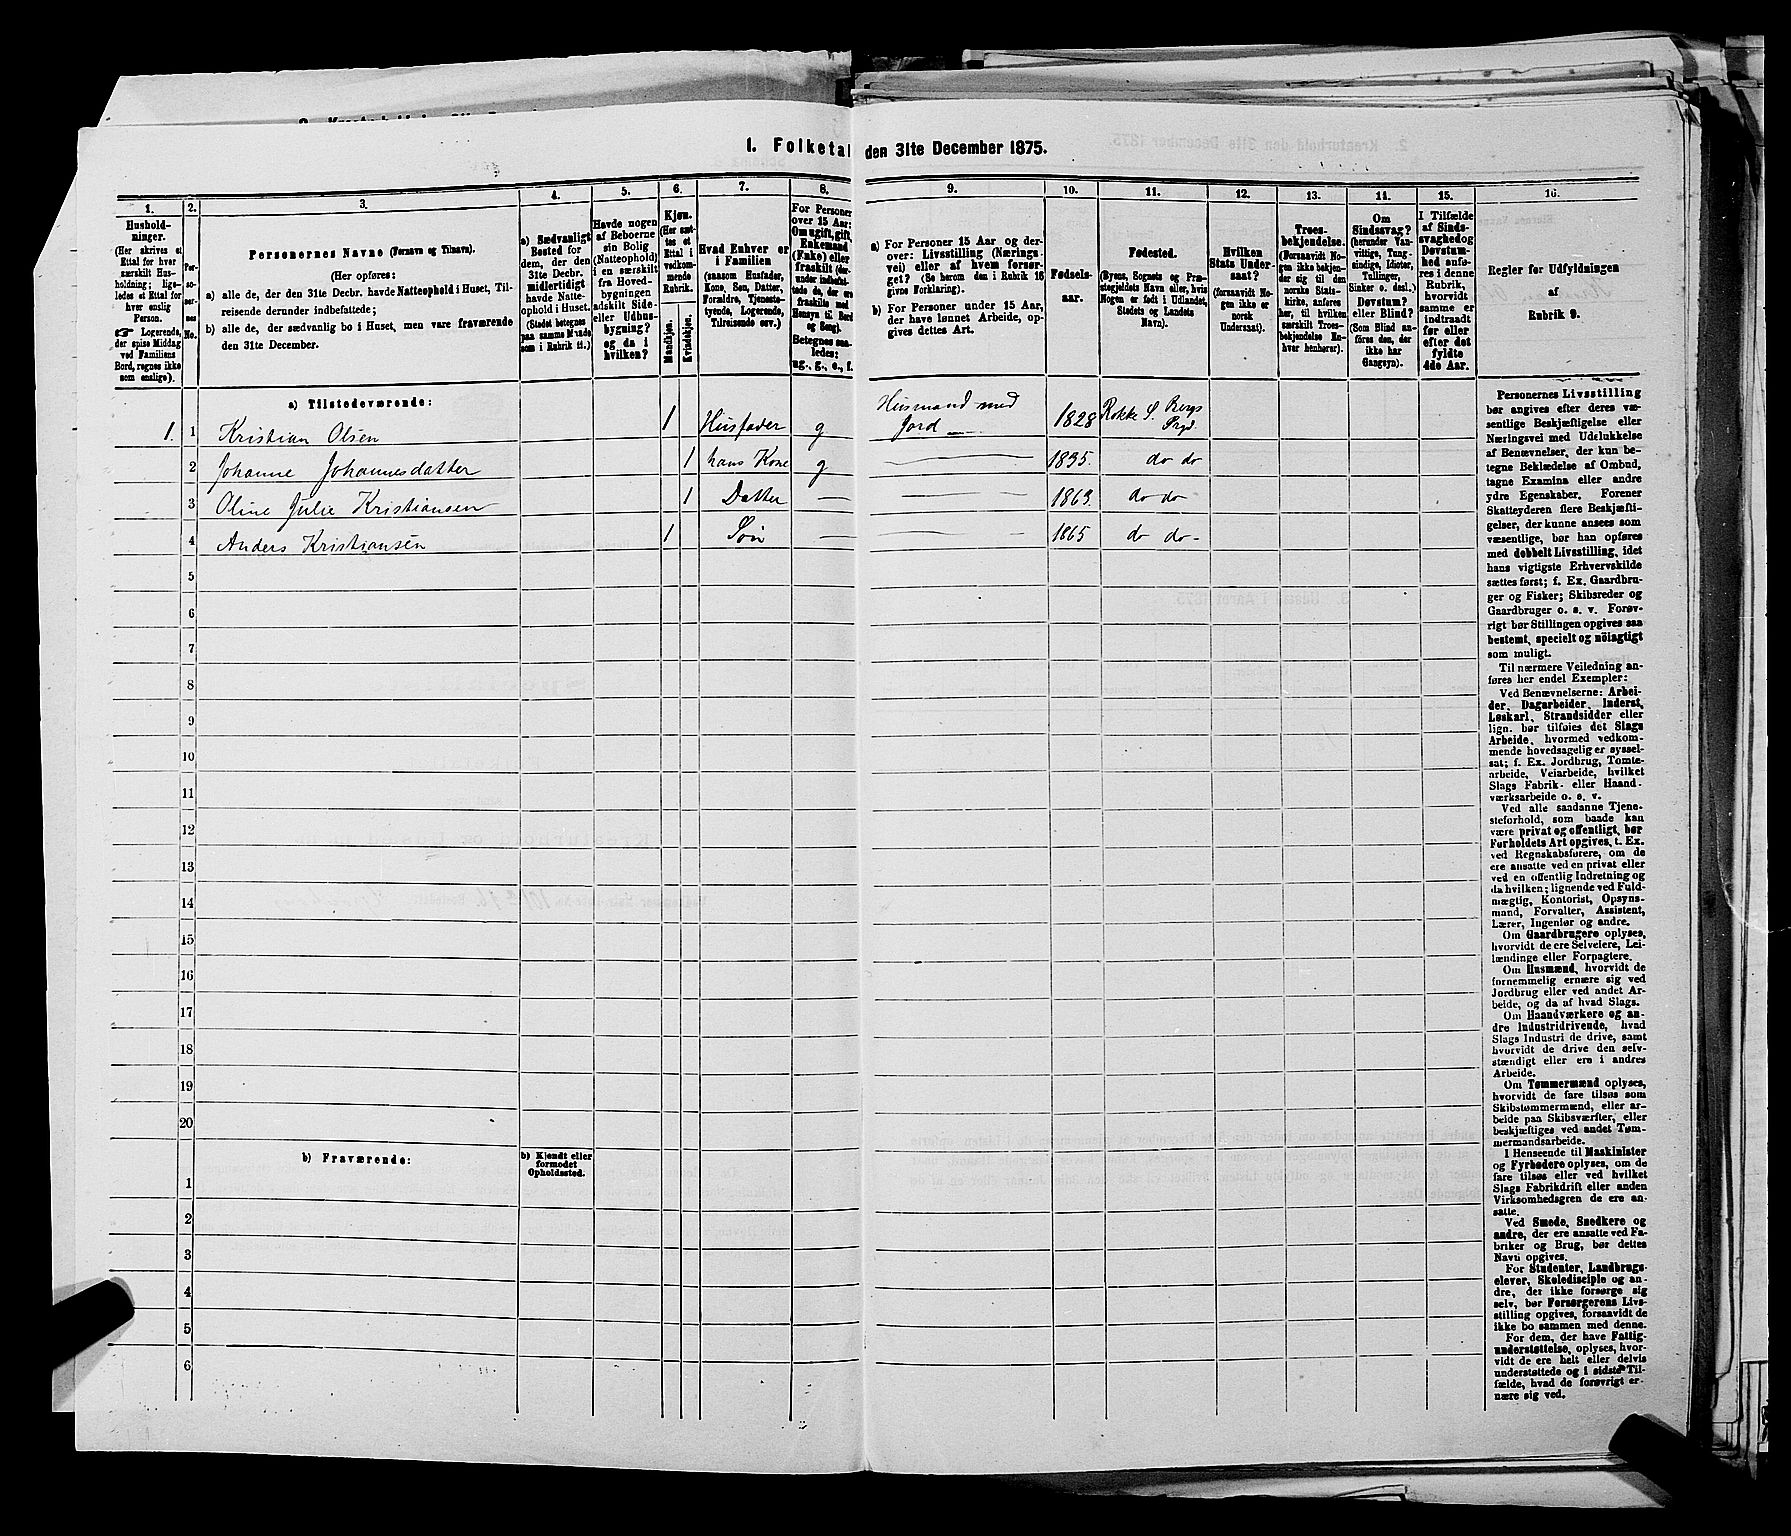 1. Folketal den 31te December 1875.
1.
2.
3.
4.
5.
6.
7.
8.
9.
10.
11.
12.
13.
14.
15.
16.
Hushold-
ninger.
(Her skrives et
Ettal for hver
særskilt Hus-
holdning; lige-
ledes et Ettal for
hver enslig
Person.
☞ Logerende,
der spise Middag
ved Familiens
Bord, regnes ikke
som enslige).
Per-
so-
ner-
nes
No.
Personernes Navne (Fornavn og Tilnavn).
(Her opføres:
a) alle de, der den 31te Decbr. havde Natteophold i Huset, Til-
reisende derunder indbefattede;
b) alle de, der sædvanlig bo i Huset, men vare fraværende
den 31te December.
a) Sædvanligt
Bosted for
dem, der den
31te Decbr.
midlertidigt
havde Natte-
ophold i Huset.
(Stedet betegnes
paa samme Maade
som i Rubrik 11.)
Havde nogen
af Beboerne
sin Bolig
(Natteophold)
i en særskilt
fra Hoved-
bygningen
adskilt Side-
eller Udhus-
bygning?
og da i
hvilken?
Kjøn.
(Her sæt-
tes et
Ettal i
vedkom-
mende
Rubrik.
Mandkjøn.
Kvindekjøn.
Hvad Enhver er
i Familien
(saasom Husfader,
Kone, Søn, Datter,
Forældre, Tjeneste-
tyende, Logerende,
Tilreisende osv.)
For Personer
over 15 Aar:
Om ugift, gift,
Enkemand
(Enke) eller
fraskilt (der-
under indbefat-
tede de, der ere
fraskilte med
Hensyn til Bord
og Seng).
Betegnes saa-
ledes:
ug., g., e., f.
a) For Personer 15 Aar og der-
over: Livsstilling (Nærings-
vei) eller af hvem forsør-
get? (Se herom den i Rubrik 16
givne Forklaring).
b) For Personer under 15 Aar,
der have lønnet Arbeide, op-
gives dettes Art.
Fødsels-
aar.
Fødested.
(Byens, Sognets og Præ-
stegjeldets Navn eller, hvis
Nogen er født i Udlandet,
Stedets og Landets
Navn).
Hvilken
Stats Under-
saat?
(forsaavidt No-
gen ikke er
norsk
Undersaat).
Troes-
bekjendelse.
(Forsaavidt No-
gen ikke bekjen-
der sig til den
norske Stats-
kirke, anføres
her, til hvilken
særskilt Troes-
bekjendelse En-
hver henhører).
Om
Sindssvag?
(herunder Van-
vittige, Tung-
sindige, Idioter,
Tullinger,
Sinker o. desl.)
Døvstum?
eller Blind?
(Som Blind an-
føres den, der
ikke har
Gangsyn).
I Tilfælde
af Sinds-
svaghed og
Døvstum-
hed anfø-
res i denne
Rubrik,
hvorvidt
samme er
indtraadt
før eller
efter det
fyldte
4de Aar.
Regler for Udfyldningen
af
Rubrik 9.
a) Tilstedeværende:
1. 1 Kristian Olsen 1 Husfader g Husmand med Jord 1828 Rokke S. Bergs Prgd.
2 Johanne Johannesdatter 1 hans Kone g — 1835. do do
3 Oline Julie Kristiansen 1 Datter — — 1863. do do
4 Anders Kristiansen 1 Søn — — 1865 do do -
5
6
7
8
9
10
11
12
13
14
15
16
17
18
19
20
b) Fraværende:
b) Kjendt eller
formodet
Opholdssted.
1
2
3
4
5
6
Personernes Livsstilling
bør angives efter deres væ-
sentlige Beskjæftigelse eller
Næringsvei med Udelukkelse
af Benævnelser, der kun be-
tegne Beklædelse af Ombud,
tagne Examina eller andre
ydre Egenskaber. Forener
Skatteyderen flere Beskjæfti-
gelser, der kunne ansees som
væsentlige, bør han opføres
med dobbelt Livsstilling, idet
hans vigtigste Erhvervskilde
sættes først; f. Ex. Gaardbru-
ger og Fisker; Skibsreder og
Gaardbruger o. s. v. Forøv-
rigt bør Stillingen opgives saa
bestemt, specielt og nöiagtigt
som muligt.
Til nærmere Veiledning an-
føres her endel Exempler:
Ved Benævnelserne: Arbei-
der, Dagarbeider, Inderst,
Løskarl, Strandsidder eller
lign. bør tilføies det Slags
Arbeide, hvormed vedkom-
mende hovedsagelig er syssel-
sat; f. Ex. Jordbrug, Tomte-
arbeide, Veiarbeide, hvilket
Slags Fabrik- eller Haand-
værksarbeide o. s. v.
Ved alle saadanne Tjene-
steforhold, som baade kan
være privat og offentligt, bør
Forholdets Art opgives, t. Ex.
ved Regnskabsførere, om de
ere ansatte ved en privat eller
ved en offentlig Indretning og
da hvilken; lignende ved Fuld-
mægtig, Kontorist, Opsyns-
mand, Forvalter, Assistent,
Lærer, Ingeniør og andre.
Om Gaardbrugere oplyses,
hvorvidt de ere Selveiere, Lei-
lændinge eller Forpagtere.
Om Husmænd, hvorvidt de
fornemmelig ernære sig ved
Jordbrug eller ved andet Ar-
beide, og da af hvad Slags.
Om Haandværkere og an-
dre Industridrivende, hvad
Slags Industri de drive, samt
hvorvidt de drive den selv-
stændigt eller ere i andres
Arbeide.
Om Tømmermænd oplyses,
hvorvidt de fare tilsøs som
Skibstømmermænd, eller ar-
beide paa Skibsværfter, eller
beskjæftiges ved andet Tøm-
mermandsarbeide.
I Henseende til Maskinister
og Fyrbødere oplyses, om de
fare tilsøs eller ved hvilket
Slags Fabrikdrift eller anden
Virksomhedsgren de ere an-
satte.
Ved Smede, Snedkere og
andre, der ere ansatte ved Fa-
briker og Brug, bør dettes
Navn opgives.
For Studenter, Landbrugs-
elever, Skoledisciple og an-
dre, der ikke forsørge sig
selv, bør Forsørgerens Livs-
stilling opgives, forsaavidt de
ikke bo sammen med denne.
For dem, der have Fattig-
understøttelse, oplyses, hvor-
vidt de ere helt eller delvis
understøttede og i sidste Til-
fælde, hvad de forøvrigt er-
nære sig ved.